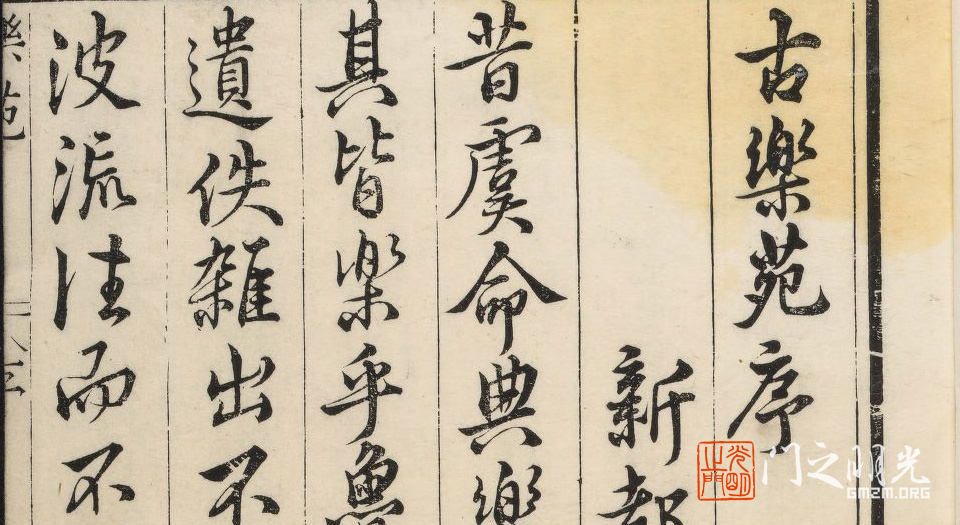 古樂苑序
新都
昔虞命典樂
其皆樂乎魚
遺佚雜出不
波流注而不
樂苑
門之明光
GMZM.ORG
光明之門